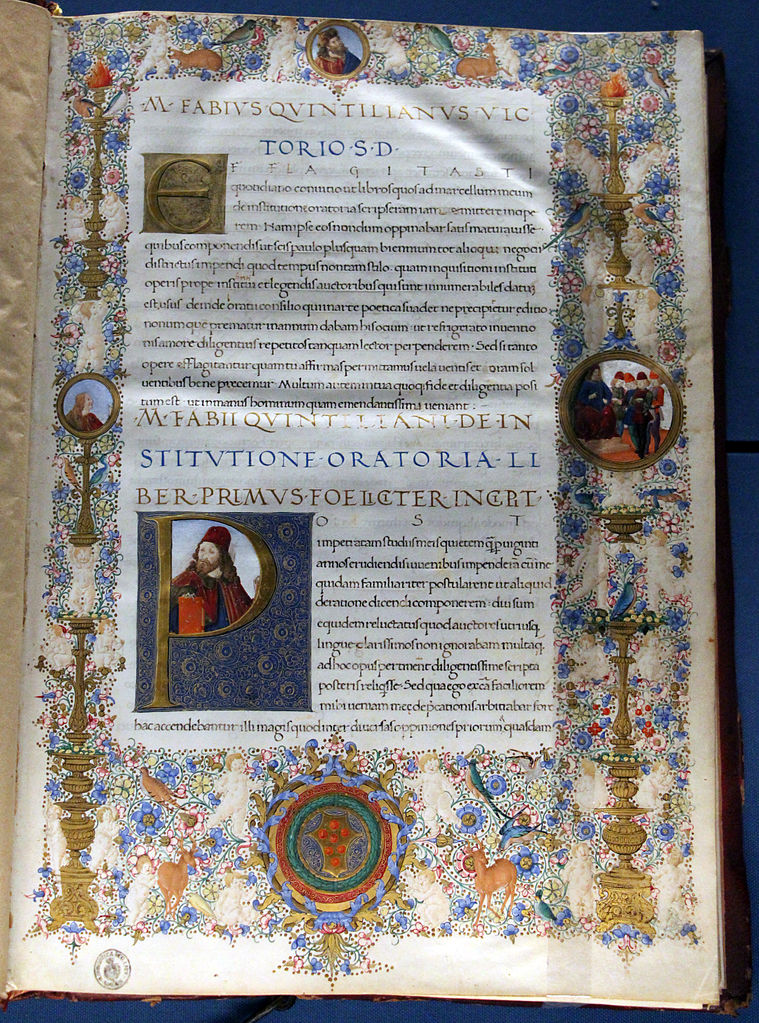 M·FABIVS QVINTILIANVS VIC
TORIO·S·D·
EFFLAGITASTI
quotidiano conuitio ut libros quos ad marcellum meum
de institutione oratoria scripseram iam emittere incipe
rem· Nam ipse eos nondum oppinabar satis maturuisse·
quibus componendis ut scis paulo plusquam biennium tot alioqui negociis
districtus impendi quod tempus non tam stilo quam inquisitioni instituti
operis prope infiniti et legendis auctoribus qui sunt innumerabiles datum
est usus deinde oratii consilio qui in arte poetica suadet ne precipitetur editio
nonumque prematur in annum dabam his ocium ut refrigerato inuentio
nis amore diligentius repetitos tanquam lector perpenderem· Sed si tanto
opere efflagitantur quam tu affirmas permittamus uela uentis et oram sol
uentibus bene precemur· Multum autem in tua quoque fide et diligentia posi
tum est ut in manus hominum quam emendatissimi ueniant·
M·FABII QVINTILIANI·DE·IN
STITVTIONE·ORATORIA·LI
BER·PRIMVS·FOELICTER·INCPT·
POST
impetratam studiis meis quietem quam per uiginti
annos erudiendis iuuenibus impenderam cum me
quidam familiariter postularent ut aliquid
de ratione dicendi componerem· diu sum
equidem reluctatus quod auctores utriusq
lingue clarissimos non ignorabam multaq
ad hoc opus pertinent diligentissime scripta
posteris reliqsse· Sed qua ego ex cã faciliorem
mihi ueniam meę deprecationis arbitrabar fore
hac accendebantur illi magis quod inter diuersas oppiniones priorum quasdam